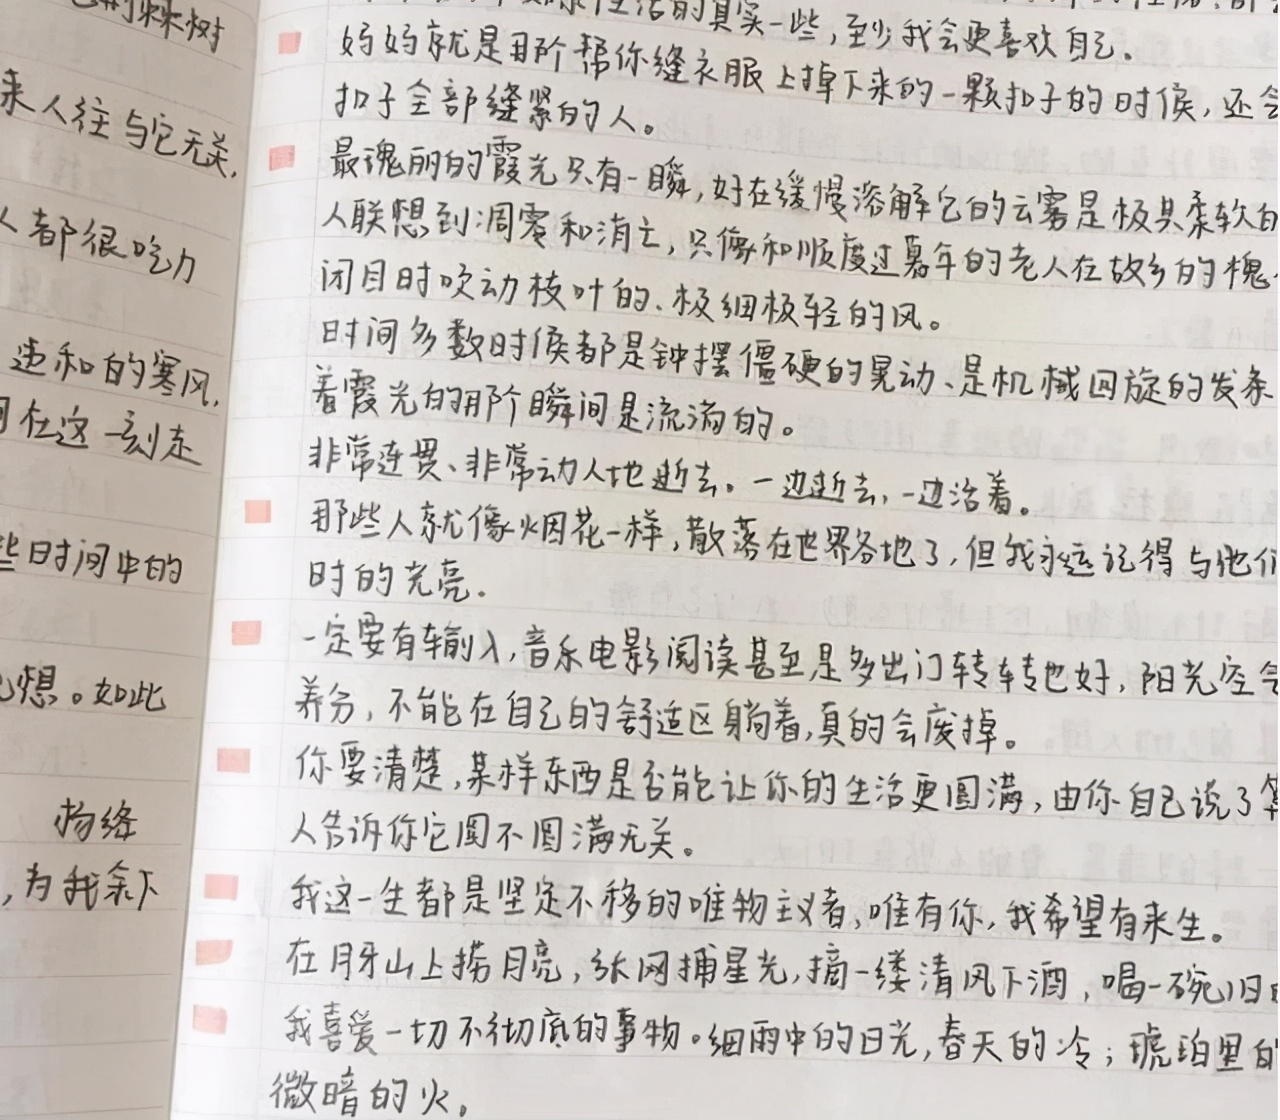 来人往与它无关,
人都很吃力
违和的寒风,
在这一刻走
些日时间中的
想。如此
杨绛
,为我余下
生活的真实一些,至少我会更喜欢自己.
妈妈就是那个帮你缝衣服上掉下来的一颗扣子的时候,还会
扣子全部缝紧的人。
最瑰丽的霞光只有一瞬,好在缓慢溶解它的云雾是极其柔软的
人联想到凋零和消亡,只像和顺度过暮年的老人在故乡的槐
闭目时吹动枝叶的、极细极轻的风。
时间多数时候都是钟摆僵硬的晃动、是机械回旋的发条
着霞光的那个瞬间是流淌的。
非常连贯、非常动人地逝去。一边逝去,一边活着。
那些人就像烟花一样,散落在世界各地了,但我永远记得与他们
时的光亮.
一定要有输入,音乐电影阅读甚至是多出门转转也好,阳光空气
养分,不能在自己的舒适区躺着,真的会废掉。
你要清楚,某样东西是否能让你的生活更圆满,由你自己说了算
人告诉你它圆不圆满无关。
我这一生都是坚定不移的唯物主义者,唯有你,我希望有来生。
在月牙山上捞月亮,张网捕星光,摘一缕清风下酒,喝一碗旧
我喜爱一切不彻底的事物。细雨中的日光,春天的冷;琥珀里的
微暗的火。